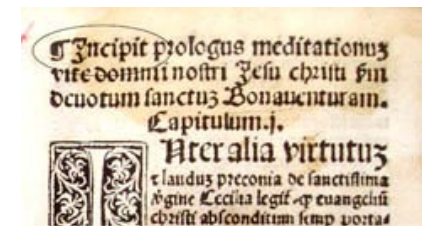 ¶ Incipit prologus meditationuꝫ
vite domini nostri Jesu christi ẜm
deuotum sanctuꝫ Bonauenturam.
Capitulum.j.
INter alia virtutuꝫ
⁊ lauduꝫ preconia de sanctissima
v̓gine Cecilia legit̃ ꝙ euangeliū
christi absconditum semp porta-